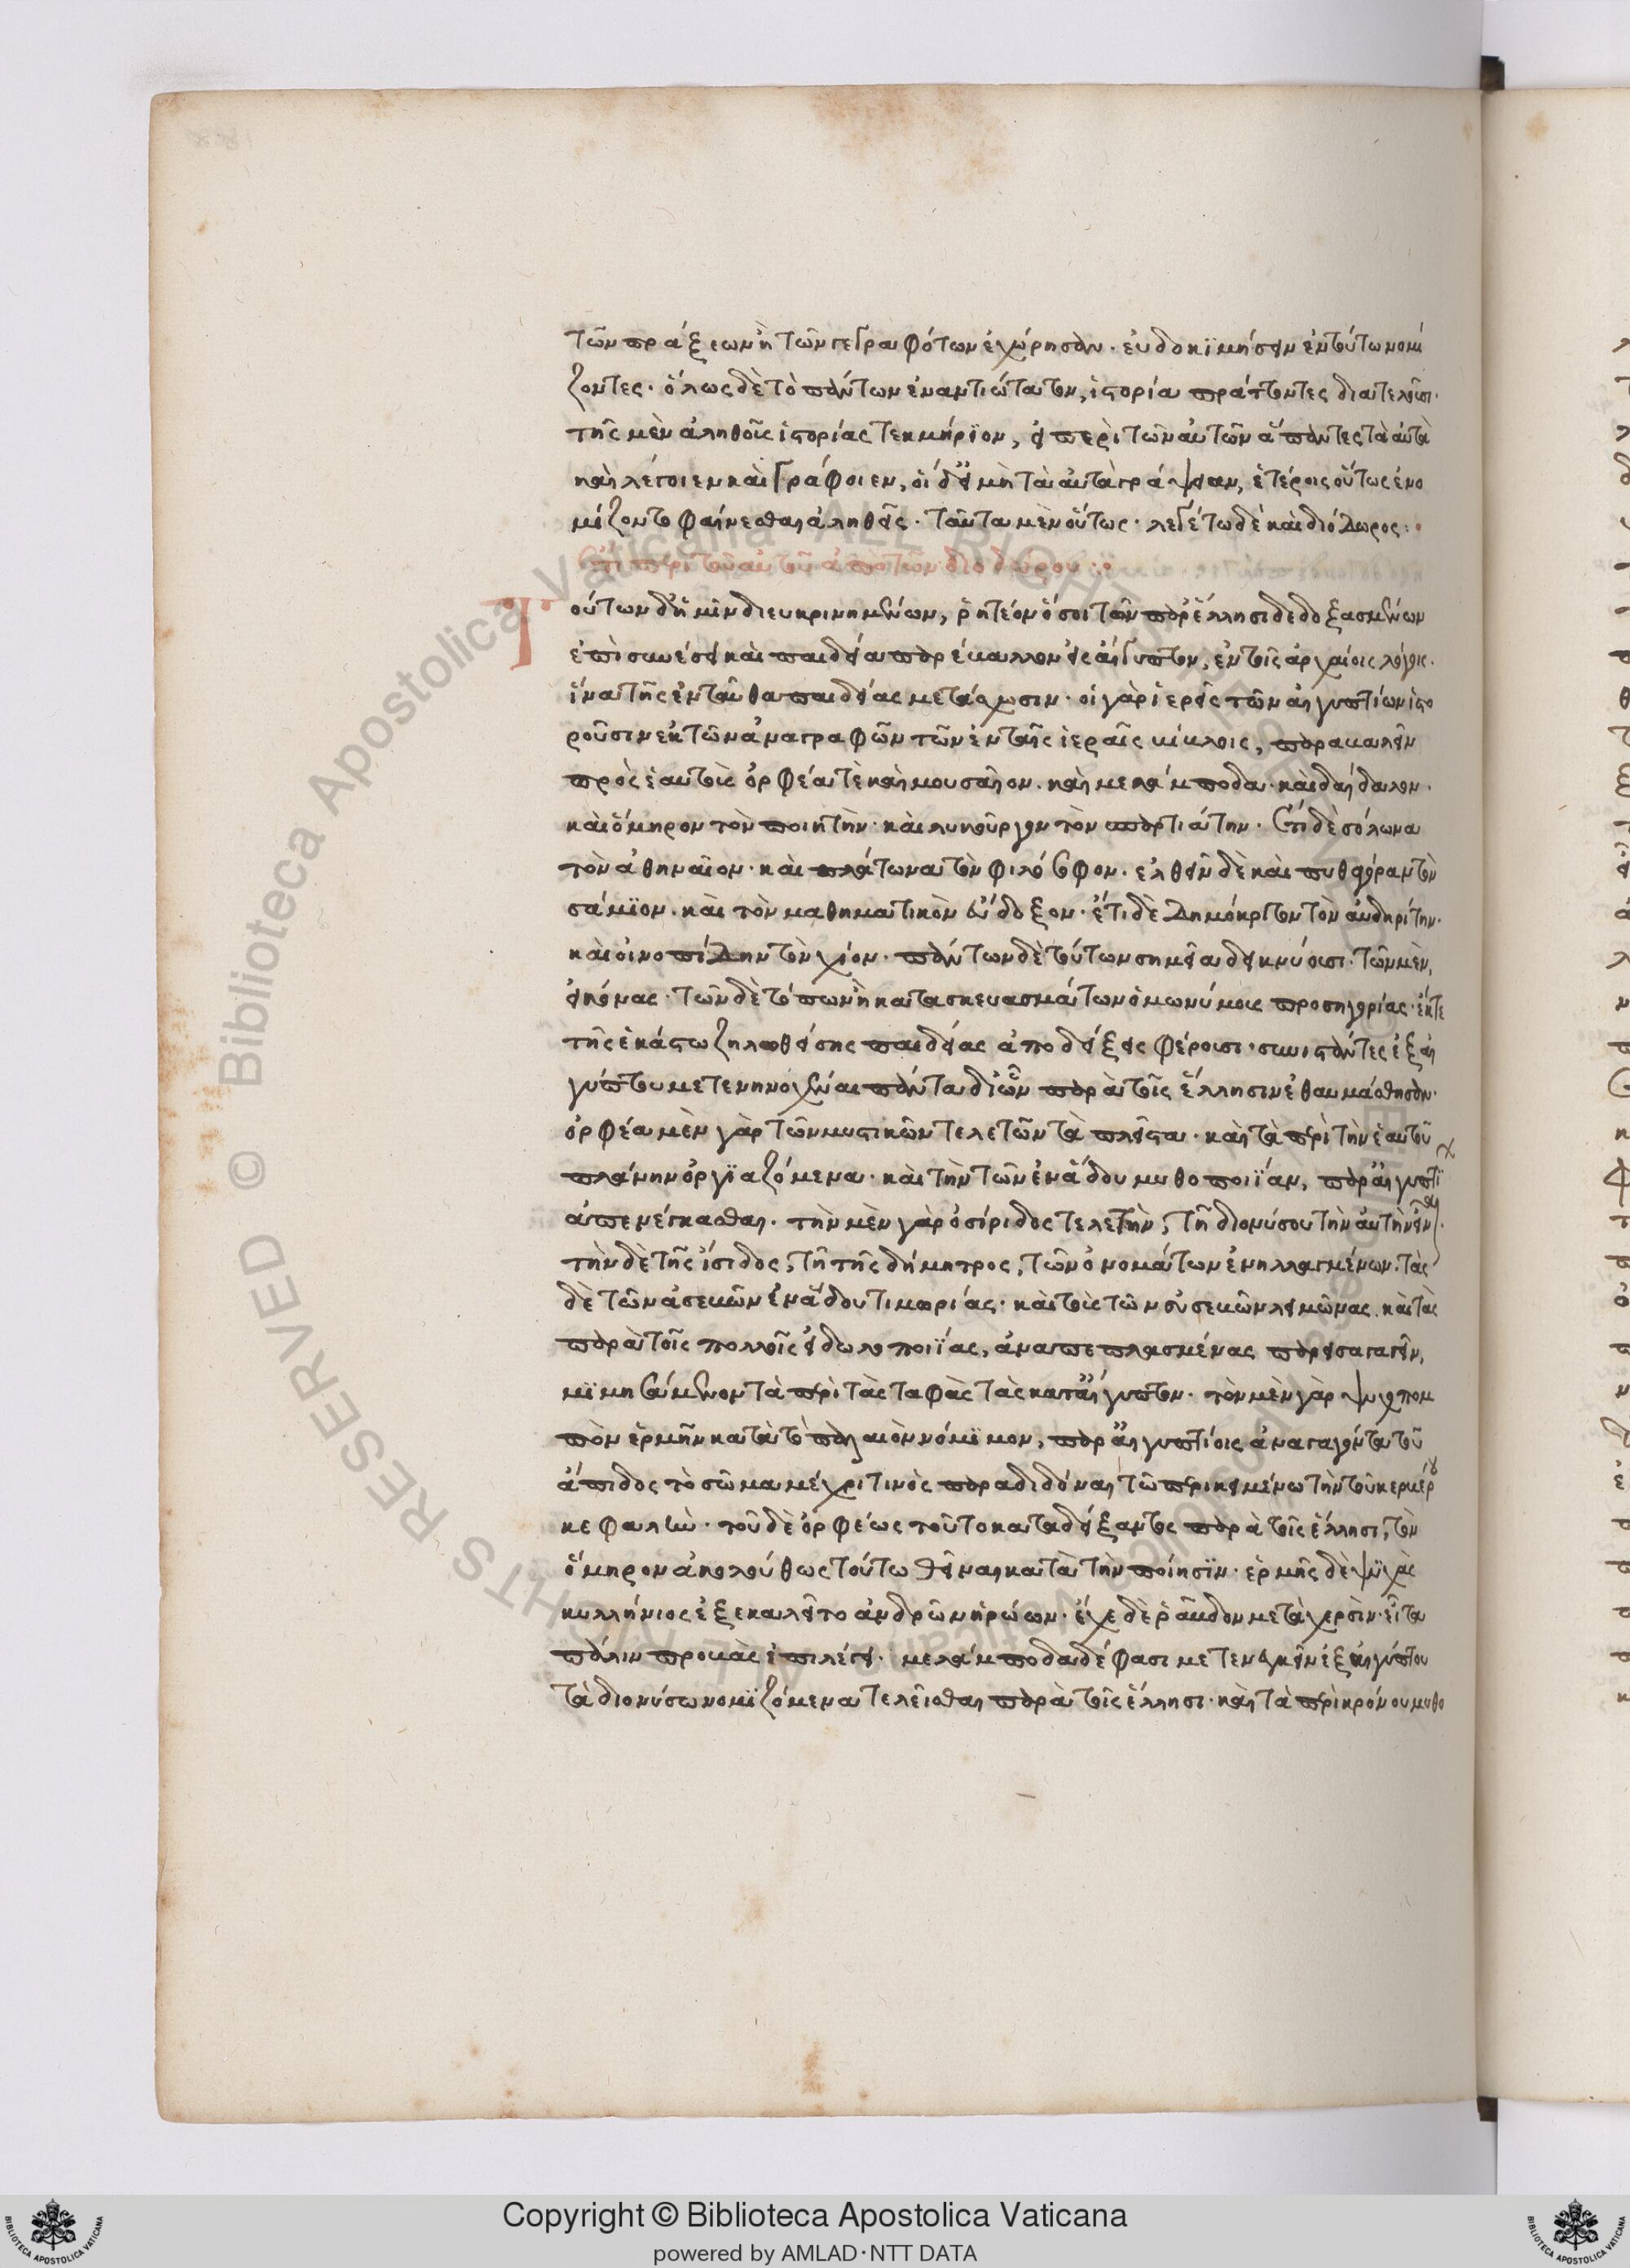 τῶν πράξεων ἢ τῶν γεγραφότων ἐχώρησαν. εὐδοκϊμήσειν ἐν τούτω νομί
ζοντες. ὅλως δὲ τὸ πάντων ἐναντιώτατον, ἱστορία πράττοντες διατελοῦσι.
τῆς μὲν ἀληθοῦς ἱστορίας τεκμήρϊον, εἰ περὶ τῶν αὐτῶν ἅπαντες τὰ αὐτὰ
καὶ λέγοιεν καὶ γράφοιεν, οἱ δ' εἰ μὴ τὰ αὐτὰ γράψειαν, ἑτέροις οὕτως ἐνο
μίζοντο φαίνεσθαι ἀληθεῖς. ταῦτα μὲν οὕτως. λεγέτω δὲ καὶ διόδωρος:
ἔτι περὶ τοῦ αὐτοῦ ἀπὸ τῶν διοδώρου :
Τούτων δ' ἡμῖν διευκρινημένων, ῥητέον ὅσοι τῶν παρ' ἕλλησι δεδοξασμένων
ἐπὶ συνέσει καὶ παιδεία παρέβαλλον εἰς αἴγυπτον, ἐν τοῖς ἀρχαίοις λόγοις.
ἵνα τῆς ἐνταῦθα παιδείας μετάσχωσιν. οἱ γὰρ ἱερεῖς τῶν αἰγυπτίων ἱστο
ροῦσιν ἐκ τῶν ἀναγραφῶν τῶν ἐν ταῖς ἱεραῖς βίβλοις, παραβαλεῖν
πρὸς ἑαυτοὺς ὀρφέα τὲ καὶ μουσαῖον. καὶ μελάμποδα. καὶ δαίδαλον.
καὶ ὅμηρον τὸν ποιητὴν. καὶ λυκοῦργον τὸν σπαρτιάτην. ἔτι δὲ σόλωνα
τὸν ἀθηναῖον. καὶ πλάτωνα τὸν φιλόσοφον. ἐλθεῖν δὲ καὶ πυθαγόραν τὸν
σάμϊον. καὶ τὸν μαθηματικὸν εὔδοξον. ἔτι δὲ δημόκριτον τὸν ἀβδηρίτην.
καὶ οἰνοπίδην τὸν χῖον. πάντων δὲ τούτων σημεῖα δεικνύουσι. τῶν μὲν,
εἰκόνας. τῶν δὲ τόπων ἢ κατασκευασμάτων ὁμωνύμους προσηγορίας. ἔκ τε
τῆς ἑκάστω ζηλωθείσης παιδείας ἀποδείξεις φέρουσι. συνιστάντες ἐξ αἰ
γύπτου μετενηνοχέναι πάντα δι' ὧν παρὰ τοῖς ἕλλησιν ἐθαυμάσθησαν.
ὀρφέα μὲν γὰρ τῶν μυστικῶν τελετῶν τὰ πλεῖστα. καὶ τὰ περὶ τὴν ἑαυτοῦ
πλάνην ὀργϊαζόμενα. καὶ τὴν τῶν ἐν ἅδου μυθοποιΐαν, παρ' αἰγυπτί
ἀπενέγκασθαι. τὴν μὲν γὰρ ὀσίριδος τελετὴν, τῆ διονύσου τὴν αὐτὴν εἶναι.
τὴν δὲ τῆς ἴσιδος, τῆ τῆς δήμητρος, τῶν ὀνομάτων ἐνηλλαγμένων. τὰς
δὲ τῶν ἀσεβῶν ἐν ἅδου τιμωρίας. καὶ τοὺς τῶν εὐσεβῶν λειμῶνας. καὶ τὰς
παρὰ τοῖς πολλοῖς εἰδωλοποιΐας, ἀναπεπλασμένας παρεισαγαγεῖν,
μϊμησάμενον τὰ περὶ τὰς ταφὰς τὰς κατ' αἴγυπτον. τὸν μὲν γὰρ ψυχοπομ
πὸν ἑρμῆν κατὰ τὸ παλαιὸν νόμϊμον, παρ' αἰγυπτίοις ἀναγαγόντα τοῦ
ἄπιδος τὸ σῶμα μέχρι τινὸς παραδιδόναι τῶ περικειμένω τὴν τοῦ κερβέρου
κεφαλὴν. τοῦ δὲ ὀρφέως τοῦτο καταδείξαντος παρὰ τοῖς ἕλλησι, τὸν
ὅμηρον ἀκολούθως τούτω θεῖναι κατὰ τὴν ποίησϊν. ἑρμῆς δὲ ψϋχὰς
κυλλήνιος ἐξεκαλεῖτο ἀνδρῶν ἡρώων. ἔχε δὲ ῥάβδον μετὰ χερσὶν. εἶτα
πάλιν προβὰς ἐπιλέγει. μελάμποδα δέ φασι μετενεγκεῖν ἐξ αἰγύπτου
τὰ διονύσω νομϊζόμενα τελεῖσθαι παρὰ τοῖς ἕλλησι. καὶ τὰ περὶ κρόνου μυθο
Copyright © Biblioteca Apostolica Vaticana
powered by AMLAD・NTT DATA